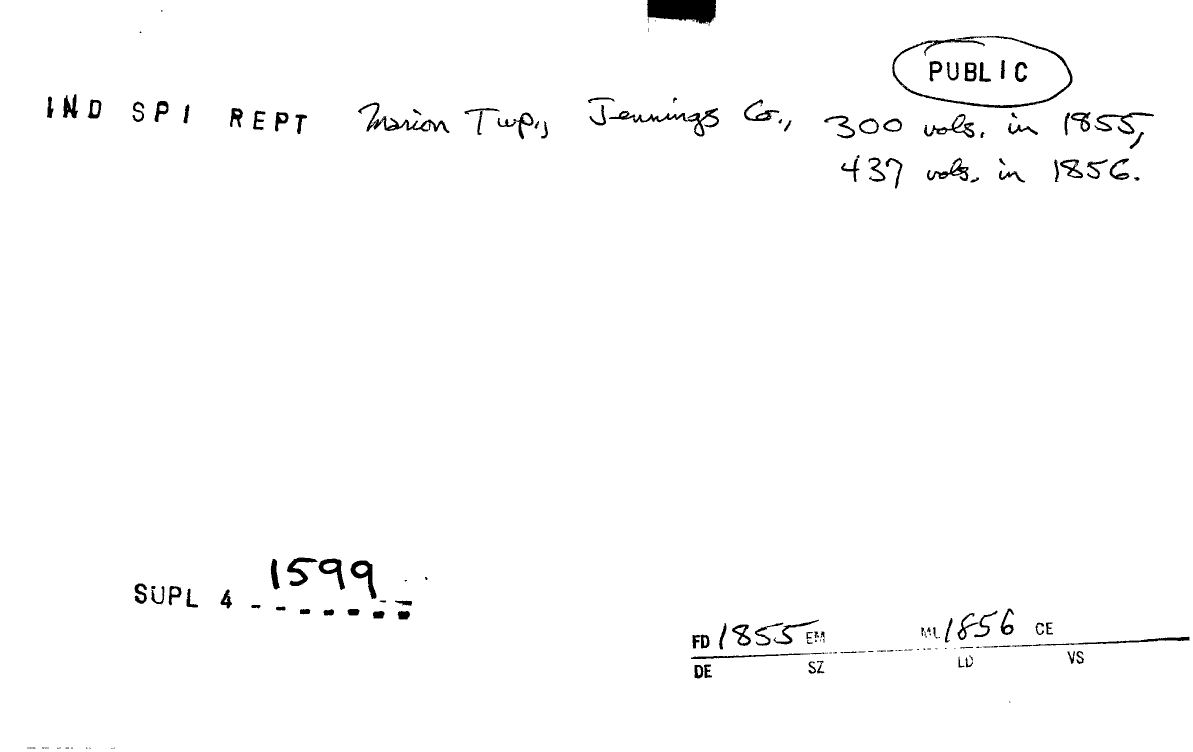 PUBLIC
IND SPI REPT Marion Twp., Jennings Co., 300 vols. in 1855,
437 vols. in 1856.
1599
SUPL 4 - - - - - - -
FD 1855 EM ML 1856 CE
DE SZ LD VS